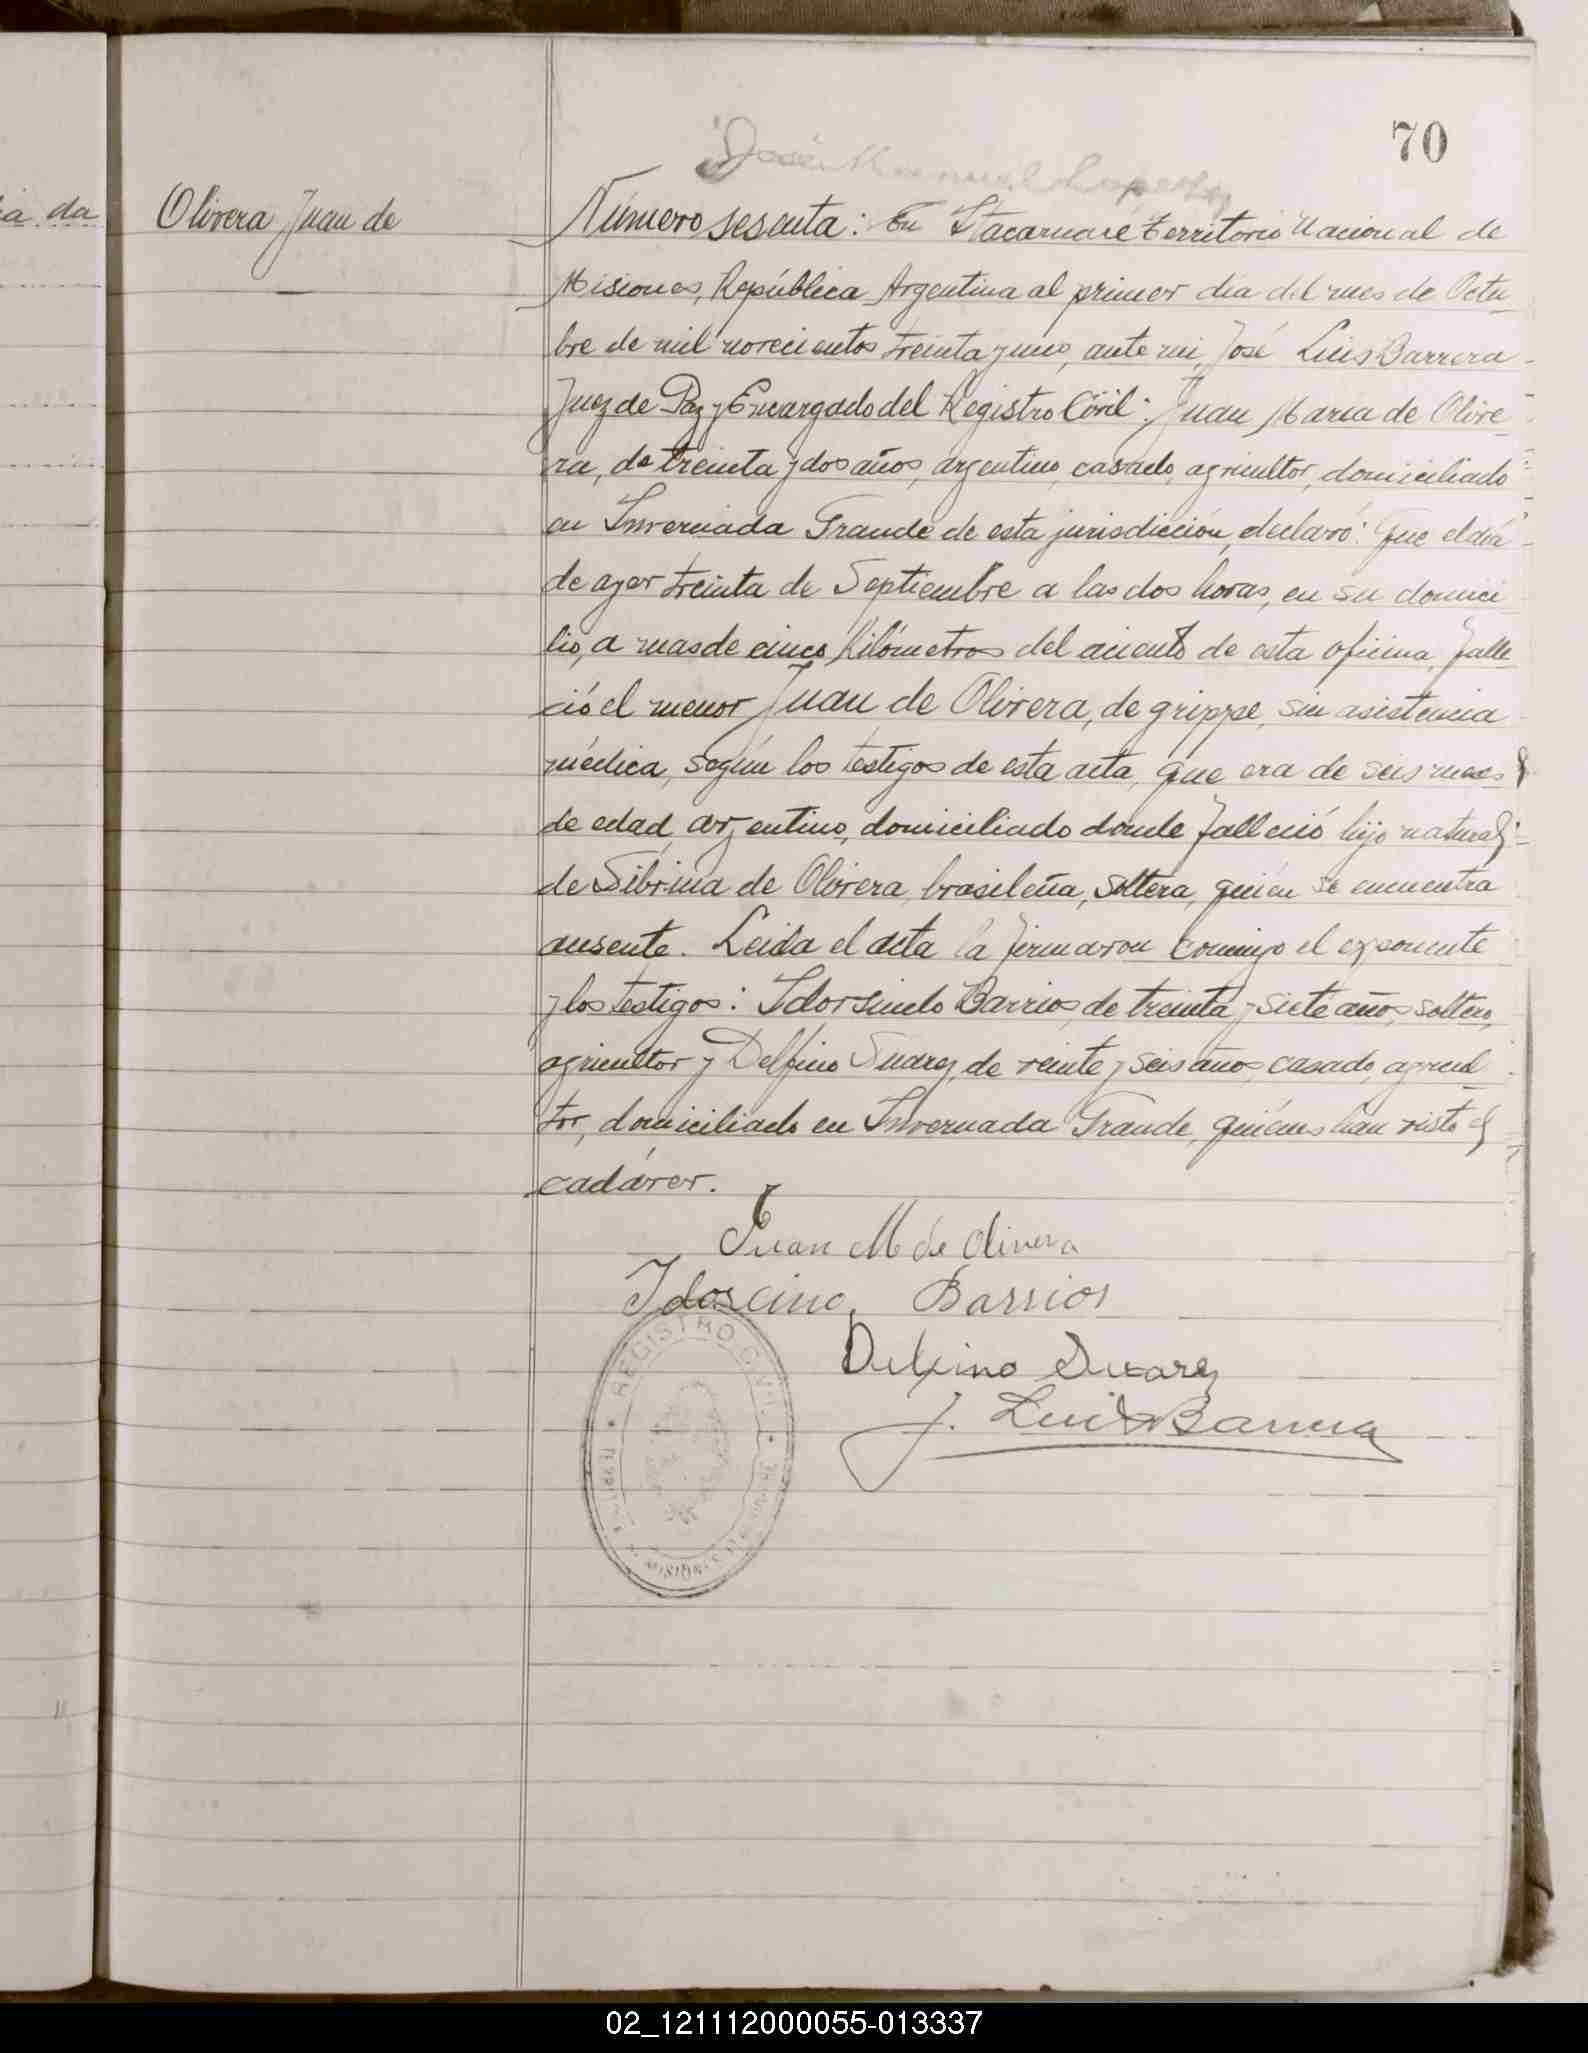 70
José Manuel
da
Olivera Juan de
Número sesenta: En Itacaruaré Territorio Nacional de
Misiones, República Argentina al primer día del mes de Octu
bre de mil novecientos treinta y uno, ante mi, José Luis Barrera
Juez de Paz y Encargado del Registro Civil: Juan Maria de Olive
ra, de treinta y dos años, argentino, casado, agricultor, domiciliado
en Invernada Grande de esta jurisdicción, declaró: Que el día
de ayer treinta de Septiembre a las dos horas, en su domici
lio, a mas de cinco kilómetros del aciento de esta oficina, falle
ció el menor Juan de Olivera, de grippe, sin asistencia
médica, según los testigos de esta acta, que era de seis meses
de edad, argentino, domiciliado donde falleció, hijo natural
de Sibrina de Olivera, brasileña, soltera, quién se encuentra
ausente. Leida el acta la firmaron conmigo el exponente
y los testigos: Idorsindo Barrios, de treinta y siete años, soltero,
agricultor y Delfino Suarez, de veinte y seis años, casado, agricul
tor, domiciliado en Invernada Grande, quiénes han visto el
cadáver.
Juan M de Olivera
Idorcino Barrios
Delfino Suarez
J. Luis Barrera
REGISTRO CIVIL
MISIONES
02_121112000055-013337